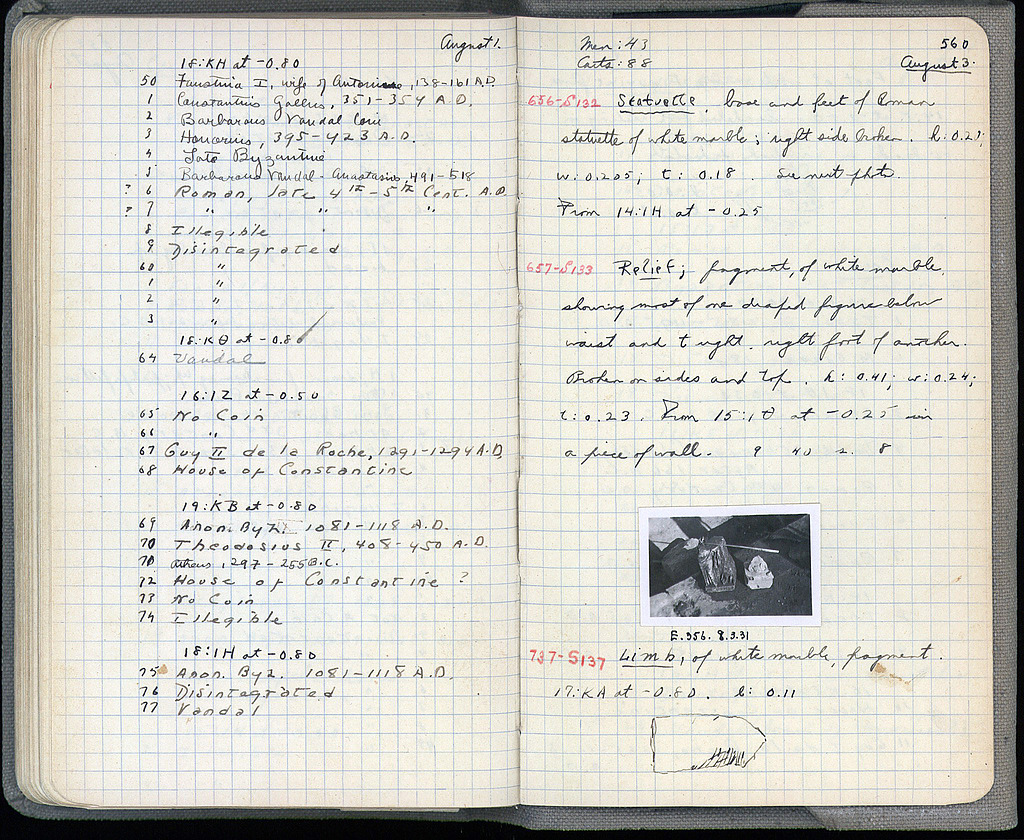 August 1.
18:KH at -0.80
50 Faustina I, wife of Antoninus, 138-161 A.D.
1 Constantius Gallus, 351-354 A.D.
2 Barbarous Vandal Coin
3 Honorius, 395-423 A.D.
4 Late Byzantine
5 Barbarous Vandal-Anastasius, 491-518
? 6 Roman, late 4th-5th Cent. A.D.
? 7 " " "
8 Illegible
9 Disintegrated
60 "
1 "
2 "
3 "
18:KΘ at -0.80
64 Vandal
16:IZ at -0.50
65 No Coin
66 "
67 Guy II de la Roche, 1291-1294 A.D.
68 House of Constantine
19:KB at -0.80
69 Anon. Byz. 1081-1118 A.D.
70 Theodosius II, 408-450 A.D.
70 Athens, 297-255 B.C.
72 House of Constantine ?
73 No Coin
74 Illegible
18:IH at -0.80
75 Anon. Byz. 1081-1118 A.D.
76 Disintegrated
77 Vandal
Men: 43
Carts: 88
560
August 3.
656-S132 Statuette, base and feet of Roman
statuette of white marble; right side broken. h: 0.21;
w: 0.205; t: 0.18. See next photo.
From 14:IH at -0.25
657-S133 Relief; fragment, of white marble,
showing most of one draped figure below
waist and t right. right foot of another.
Broken on sides and top. h: 0.41; w: 0.24;
t: 0.23. From 15:IΘ at -0.25 in
a piece of wall. 9 40 2. 8
E.356. 8.3.31
737-S137 Limb, of white marble, fragment.
17:KA at -0.80. l: 0.11